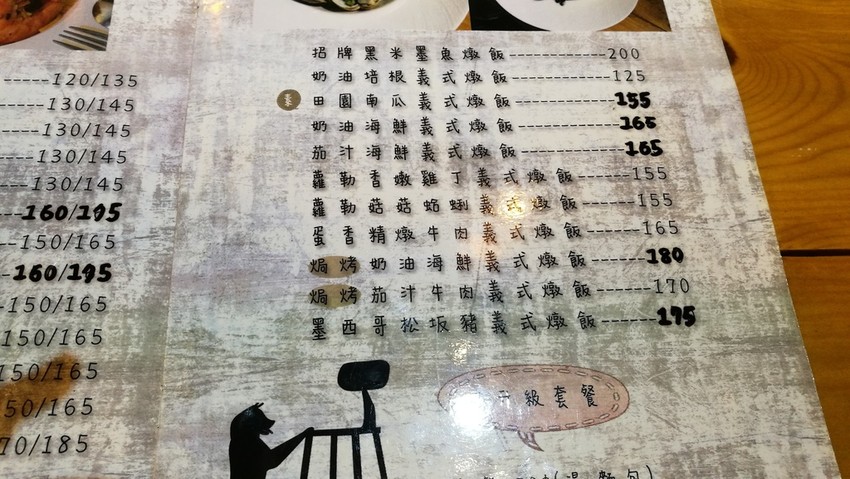 -----120/135
----130/145
----130/145
----130/145
----130/145
---160/195
--150/165
--160/195
--150/165
150/165
150/165
50/165
70/185
招牌黑米墨魚燉飯------------200
奶油培根義式燉飯------------125
田園南瓜義式燉飯------------155
奶油海鮮義式燉飯------------165
茄汁海鮮義式燉飯------------165
蘿勒香嫩雞丁義式燉飯-------155
蘿勒菇菇蛤蜊義式燉飯-------155
蛋香精燉牛肉義式燉飯-------165
焗烤奶油海鮮義式燉飯-------180
焗烤茄汁牛肉義式燉飯-------170
墨西哥松坂豬義式燉飯-------175
級套餐
(湯麵包)